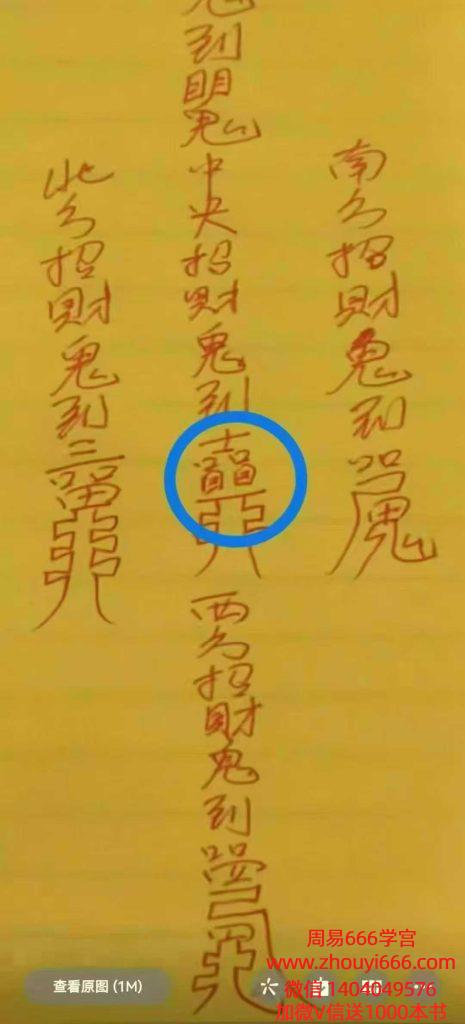 鬼到
中央招財鬼到
南方招財鬼到
北方招財鬼到
西方招財鬼到
查看原图 (1M)
周易666学宫
www.zhouyi666.com
微信1404049576
加微V信送1000本书